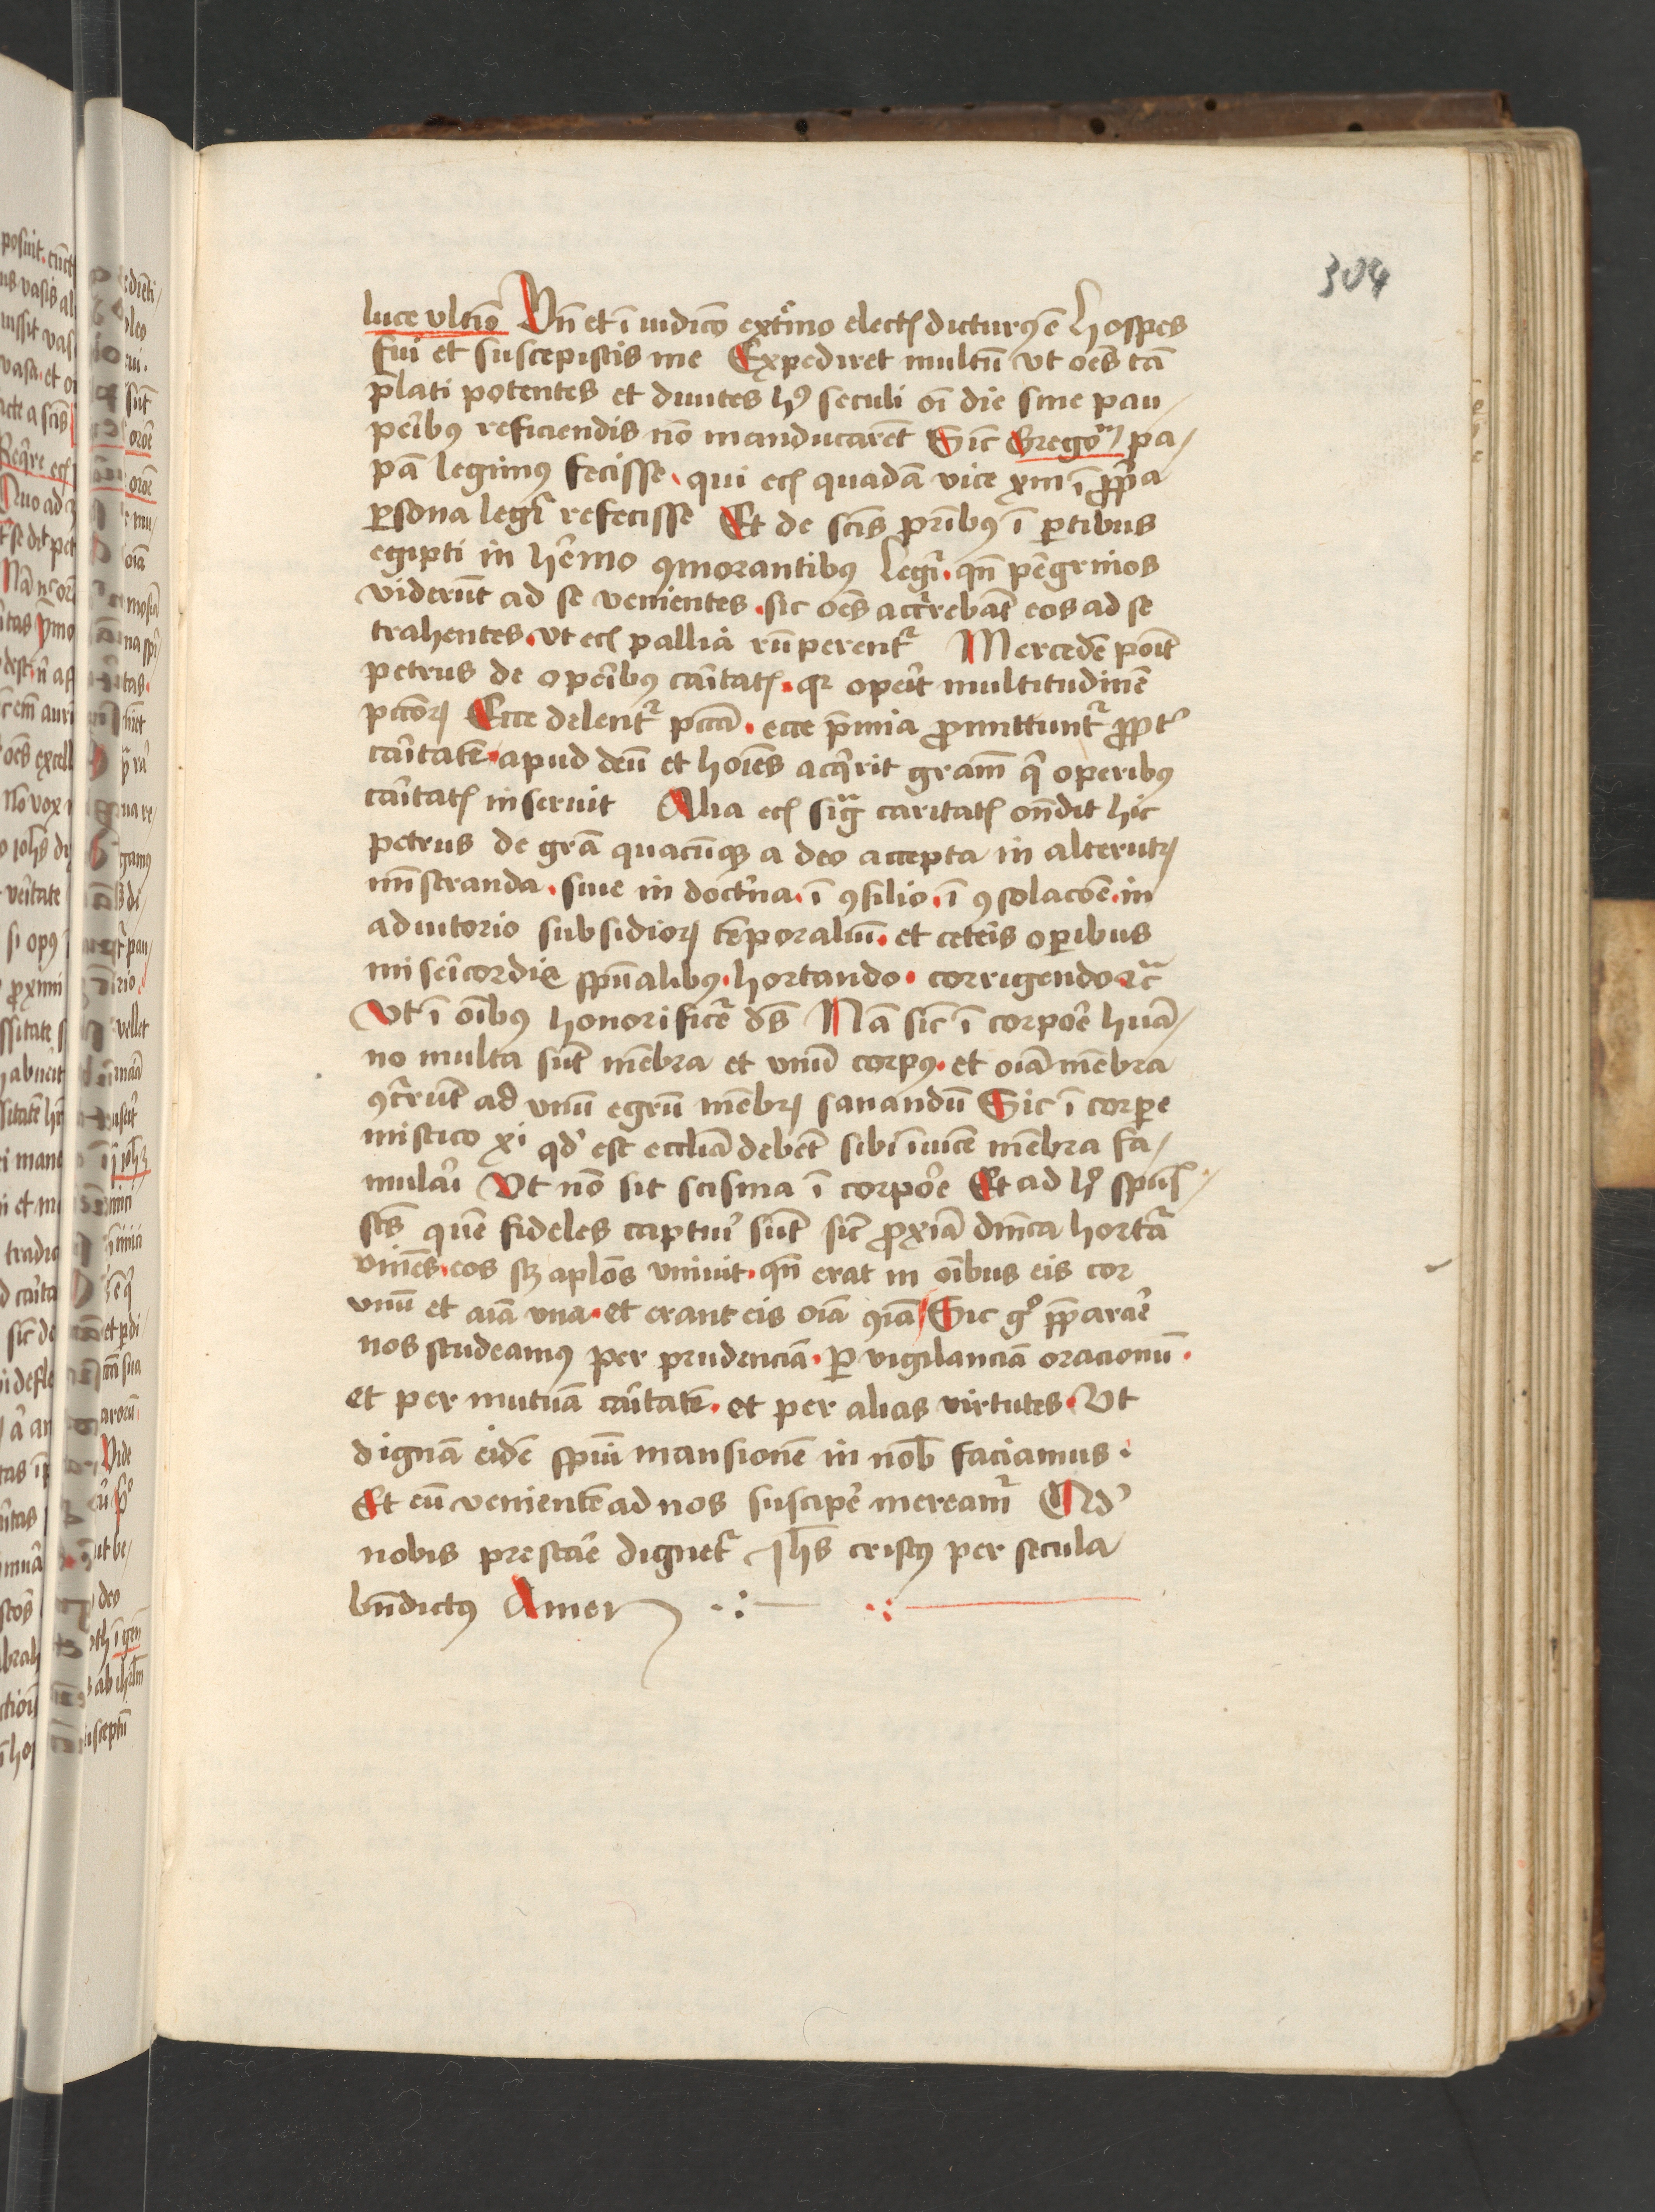 304
luce vltīo Vn̄ et ī iudicō extͥmo electꝭ dicturꝰ ē hospes
fui et suscepistis me Expediret multū vt oēs tā
p̄lati potentes et diuites hꝰ seculi oī die sine pau⸗
peribꝰ reficiendis nō manducarēt Sic̄ Gregoͬⁱ pa⸗
pā legimꝰ fecisse qui ecꝭ quadā vice xiii ī ꝓp̄a
ꝑsona legr̄ refecisse Et de sc̄is pr̄ibꝰ ī ꝑtibus
egipti in he᷑mo ꝯmorantibꝰ legr̄ qn̄ pe᷑grinos
viderūt ad se venientes sic oēs accr̄rebāt eos ad se
trahentes vt ecꝭ pallia rūperent᷑ Mercedē poīt
petrus de ope᷑ibꝰ ca᷑itatꝭ qꝛ ope᷑it multitudinē
pcc̄oꝝ Ecce delent᷑ pcc̄a ecce p̄mia ꝓmittunt᷑ ꝓpt᷑
ca᷑itatē apud deū et hoīes acq̄rit gram̄ qͥ operibꝰ
ca᷑itatꝭ inseruit Alia ecꝭ sigͣ caritatꝭ on̄dit hic
petrus de gr̄a quacūqꝫ a deo accepta in alterutꝝ
mīstranda siue in doctͥna ī ꝯsilio ī ꝯsolacōe in
adiutorio subsidioꝝ tēporaliū et cete᷑is oꝑibus
mise᷑icordie sp̄ualibꝰ hortando corrigendo ⁊c̄
Vt ī oībꝰ honorificet᷑ ds̄ Nā sic̄ ī corpore᷑ huā⸗
no multa sūt mēbra et vnū corpꝰ et oīa mēbra
ꝯcr̄rūt ad vnū egrū mēbꝝ sanandū Sic ī corꝑe
mistico xi qd᷑ est eccl̄ia debēt sibi īuicē mēbra fa⸗
mula᷑i Vt nō sit scisma ī corpoe᷑ Et ad hͦ spūs
sc̄s quē fideles captiu᷑ sūt sic̄ ꝓxīa dn̄ica hortat᷑
viniēs eos sꝫ apl̄os vniuit qn̄ erat in oībus eis cor
vnū et aīa vna et erant eis oīa ꝯīa Sic gͦ p̄parae᷑
nos studeamꝰ per prudenciā ꝑ vigilanciā oracionū
et per mutuā ca᷑itatē et per alias virtutes Vt
dignā eidē spūi mansionē in nob̄ faciamus
Et eū venientē ad nos suscipe᷑ mereamr̄ Qd᷑
nobis prestae᷑ dignet᷑ Jhs̄ cristꝰ per secula
bn̄dictꝰ Amen